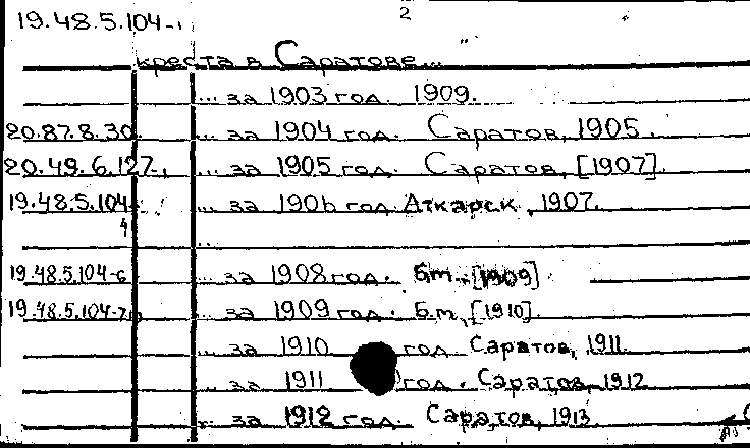 2
19.48.5.104-1
креста в Саратове...
... за 1903 год. 1909.
20.87.8.30. ... за 1904 год. Саратов, 1905.
20.49.6.127. ... за 1905 год. Саратов, [1907].
19.48.5.104-4 ... за 1906 год. Аткарск, 1907.
...
19.48.5.104-6 ... за 1908 год. Б.м., [1909]
19.48.5.104-7 ... за 1909 год. Б.м., [1910].
... за 1910 год Саратов, 1911.
... за 1911 год. Саратов, 1912
... за 1912 год. Саратов, 1913.